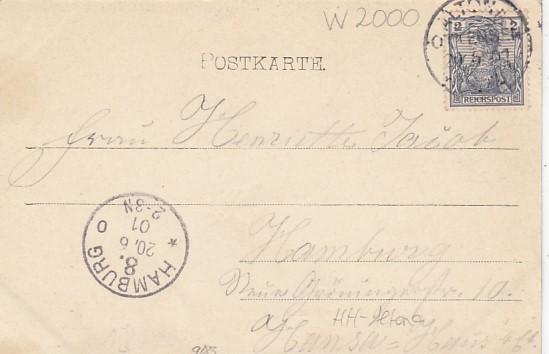 W 2000
ALTONA
OTTENSEN
2 2
REICHSPOST
POSTKARTE.
Frau Henriette Jacob
HAMBURG
8.
20.6
01
2-3N
Hamburg
Neue Gröningerstr. 10.
HH-Altona
Hansa-Haus